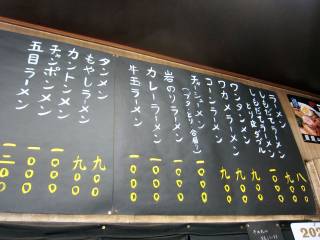 ラーメン 八〇〇
しもだてラーメン 九〇〇
しもだてラーメン
とり皮ダブル 一〇〇〇
ワンタンメン 九〇〇
ワカメラーメン 九〇〇
コーンラーメン 九〇〇
チャーシューメン
(ブタ・とり 合盛) 一〇〇〇
岩のりラーメン 一〇〇〇
カレーラーメン 一〇〇〇
牛玉ラーメン 一〇〇〇
タンメン 九〇〇
もやしラーメン 九〇〇
カントンメン 一〇〇〇
チャンポンメン 一〇〇〇
五目ラーメン 一二〇〇
202